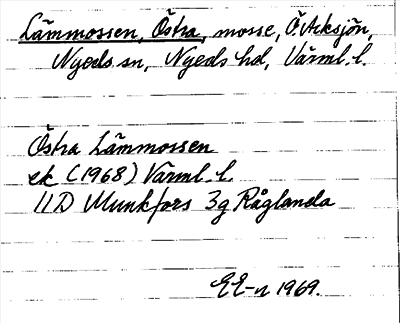 Lämmossen, Östra, mosse, Ö. Acksjön,
Nyeds sn, Nyeds hd, Värml. l.
Östra Lämmossen
ek (1968) Värml. l.
11D Munkfors 3g Råglanda
EE-n 1969.